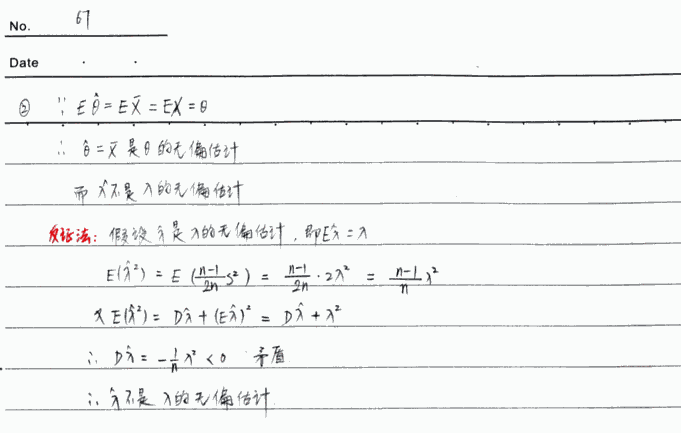 No. 67
Date . .
② ∵ Eθ̂ = EX̄ = EX = θ
∴ θ̂ = X̄ 是 θ 的无偏估计
而 λ̂ 不是 λ 的无偏估计
反证法: 假设 λ̂ 是 λ 的无偏估计, 即 Eλ̂ = λ
E(λ̂²) = E(\frac{n-1}{2n}S²) = \frac{n-1}{2n}·2λ² = \frac{n-1}{n}λ²
又 E(λ̂²) = Dλ̂ + (Eλ̂)² = Dλ̂ + λ²
∴ Dλ̂ = -\frac{1}{n}λ² < 0 矛盾
∴ λ̂ 不是 λ 的无偏估计.